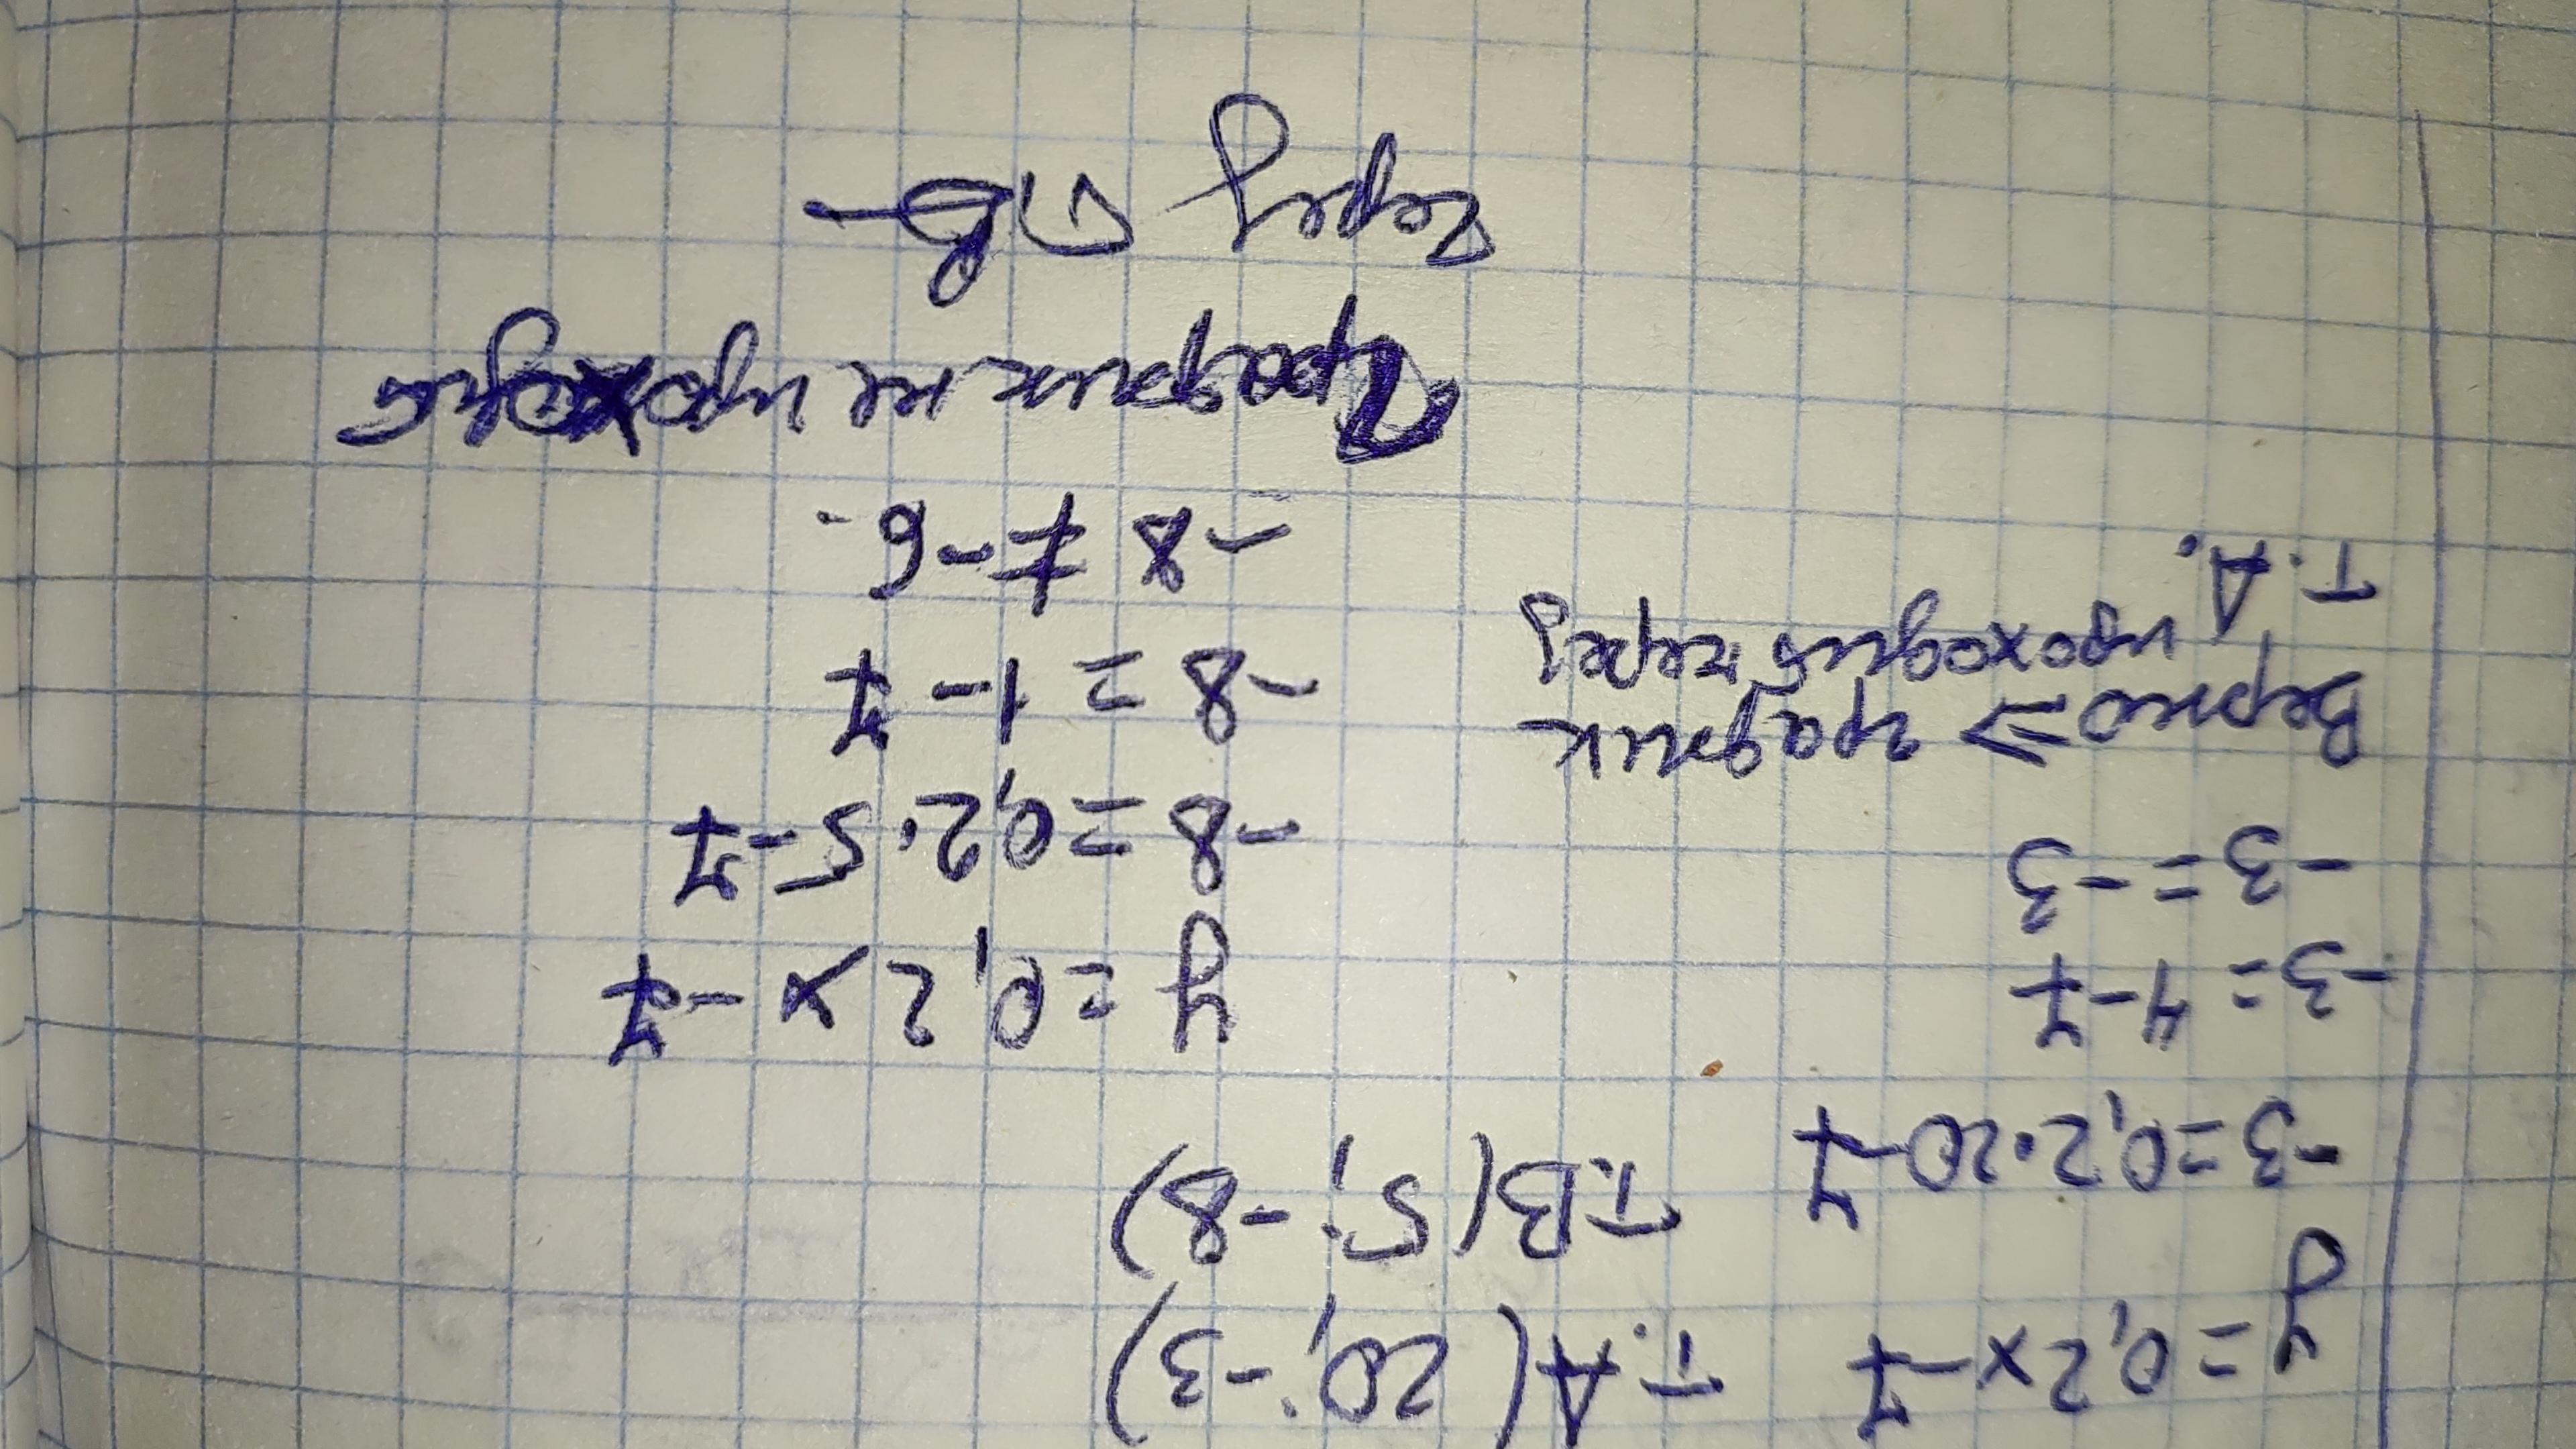 y=0,2x-7
-3=0,2·20-7
-3=4-7
-3=-3
Верно⇒ график
проходит через
т. А.
т. А( 20; -3)
т.В( 5; -8)
y=0,2x-7
-8=0,2·5-7
-8=1-7
-8≠-6.
График не проходит
через т В